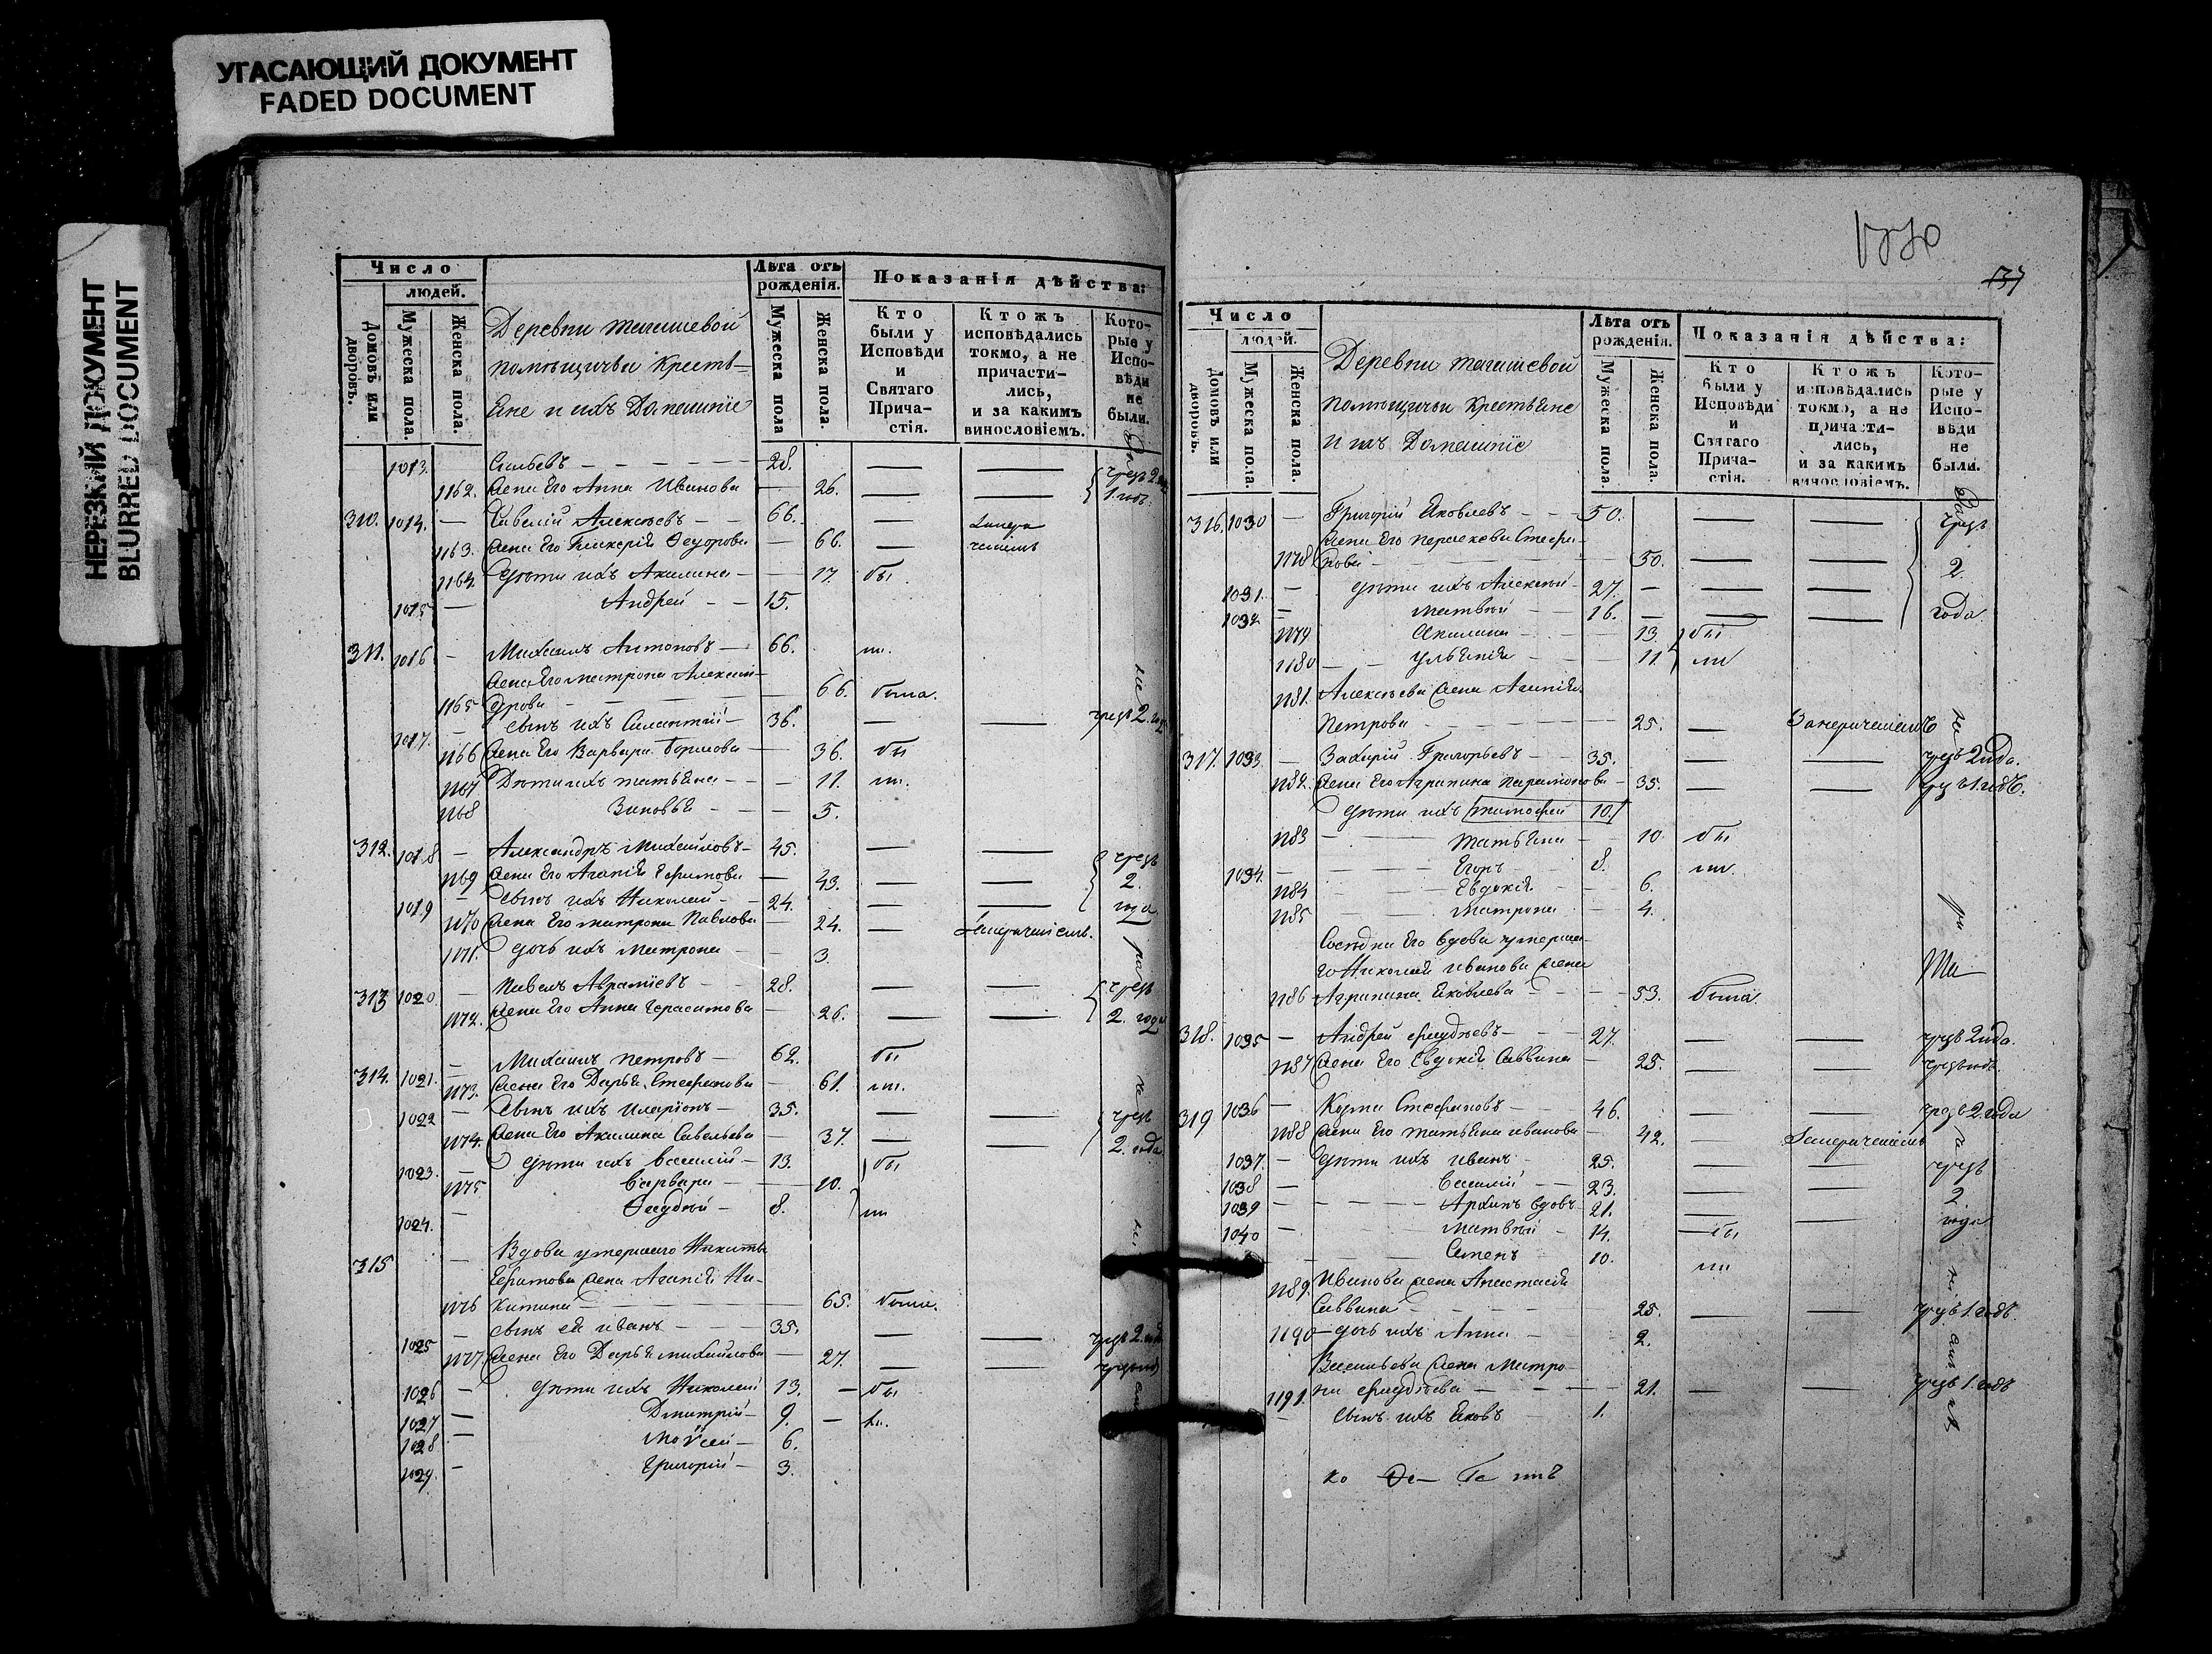 УГАСАЮЩИЙ ДОКУМЕНТ
FADED DOCUMENT
НЕРЕЗКИЙ ДОКУМЕНТ
BLURRED DOCUMENT
Число
людей.
Домовъ или дворовъ.
Мужеска пола.
Женска пола.
Деревни
помѣщичьи Крестья=
не и ихъ Домашніе
Лѣта отъ рожденія.
Мужеска пола
Женска пола.
Показанія дѣйства:
Кто были у Исповѣди и Святаго Причастія.
Ктожъ исповѣдались токмо, а не причастились, и за какимъ винословіемъ.
Которые у Исповѣди не были.
1013. 28.
1162. жена Его Анна Иванова — 26. 1. годъ.
310. 1014. — Савелій Алексѣевъ — 66.
1163. жена Его Гликерія Ѳедорова — 66.
1164. дѣти ихъ Акилина — 17. бы
1015 — Андрей — 15.
311. 1016 — Михаилъ Антоновъ — 66. ли.
жена Его Матрона Алексан-
1165 дрова — 66. была.
1017. — сынъ ихъ Силантій — 36. чрезъ 2. года
1166 жена Его Варвара Борисова — 36. бы
1167 Дѣти ихъ татьяна — 11. ли.
1168 Зиновья — 5.
312. 1018 — Александръ Михайловъ — 45. чрезъ
1169 жена Его Агапія Ефимова — 43. 2.
1019 — сынъ ихъ Николай — 24. года
1170 жена Его матрона Павлова — 24.
1171. дочь ихъ Матрона — 3.
313 1020. — Павелъ — 28. чрезъ
1172. жена Его Анна Герасимова — 26. 2. года
314. 1021. — Михаилъ Петровъ — 62. бы
1173. жена Его Дарья Стефанова — 61. ли.
1022 — сынъ ихъ Иларіонъ — 35. чрезъ
1174. жена Его Акилина Савельева — 37. 2. года
1023. — дѣти ихъ Василій — 13. бы
1175 Варвара — 10.
1024. — 8. ли
315 — Вдова умершаго Никиты
Ефимова жена Агапія Ни-
1176 китина — 65. была.
1025 — сынъ ея иванъ — 35. чрезъ 2. года
1177. жена Его Дарья михайлова — 27.
1026 — дѣти ихъ Николай 13. — бы
1027 — Дмитрій — 9. — ли.
1028 — Моѵсей — 6.
1029. — Григорій — 3.
137
Число
людей.
Домовъ или дворовъ.
Мужеска пола.
Женска пола.
Деревни
помѣщичьи Крестьяне
и ихъ Домашніе
Лѣта отъ рожденія.
Мужеска пола.
Женска пола.
Показанія дѣйства:
Кто были у Исповѣди и Святаго Причастія.
Ктожъ исповѣдались токмо, а не причастились, и за какимъ винословіемъ.
Которые у Исповѣди не были.
316. 1030 — Григорій Яковлевъ — 50. чрезъ
жена Его параскова Стефа-
1178 нова — 50. 2.
1031. — дѣти ихъ Алексѣй — 27.
1032 — матвѣй — 16. года
1179 Акилина — 13. бы
1180 — ульянія — 11. ли
1181. Алексѣева жена
Петрова — 25.
317. 1033. — Захарій Григорьевъ — 35. чрезъ 2 года.
1182. жена Его Агрипина Парамонова — 35. чрезъ 1. годъ.
дѣти ихъ тимофей 10.
1183 — татьяна — 10 бы
1034. — Егоръ 8. ли.
1184 — Евдокія — 6.
1185 — матрона — 4.
Сосѣдка Его вдова умерша-
го Николая иванова жена
1186 Агрипина Яковлева — 53. была.
318. 1035 — Андрей — 27. чрезъ 2 года.
1187 жена Его Евдокія Саввина — 25.
319 1036 — Козма Стефановъ — 46. чрезъ 2 года
1188 жена Его татьяна иванова — 42.
1037. — дѣти ихъ иванъ — 25. чрезъ
1038 — василій — 23. 2
1039 — Архипъ вдовъ — 21. года
1040 — матвѣй — 14. — бы
— Семенъ 10. ли
1189. Иванова жена Анастасія
Саввина — 25. чрезъ 1. годъ.
1190 — дочь ихъ Анна — 2.
Васильева жена матро-
1191. на — 21. чрезъ 1. годъ
— сынъ ихъ Яковъ — 1.